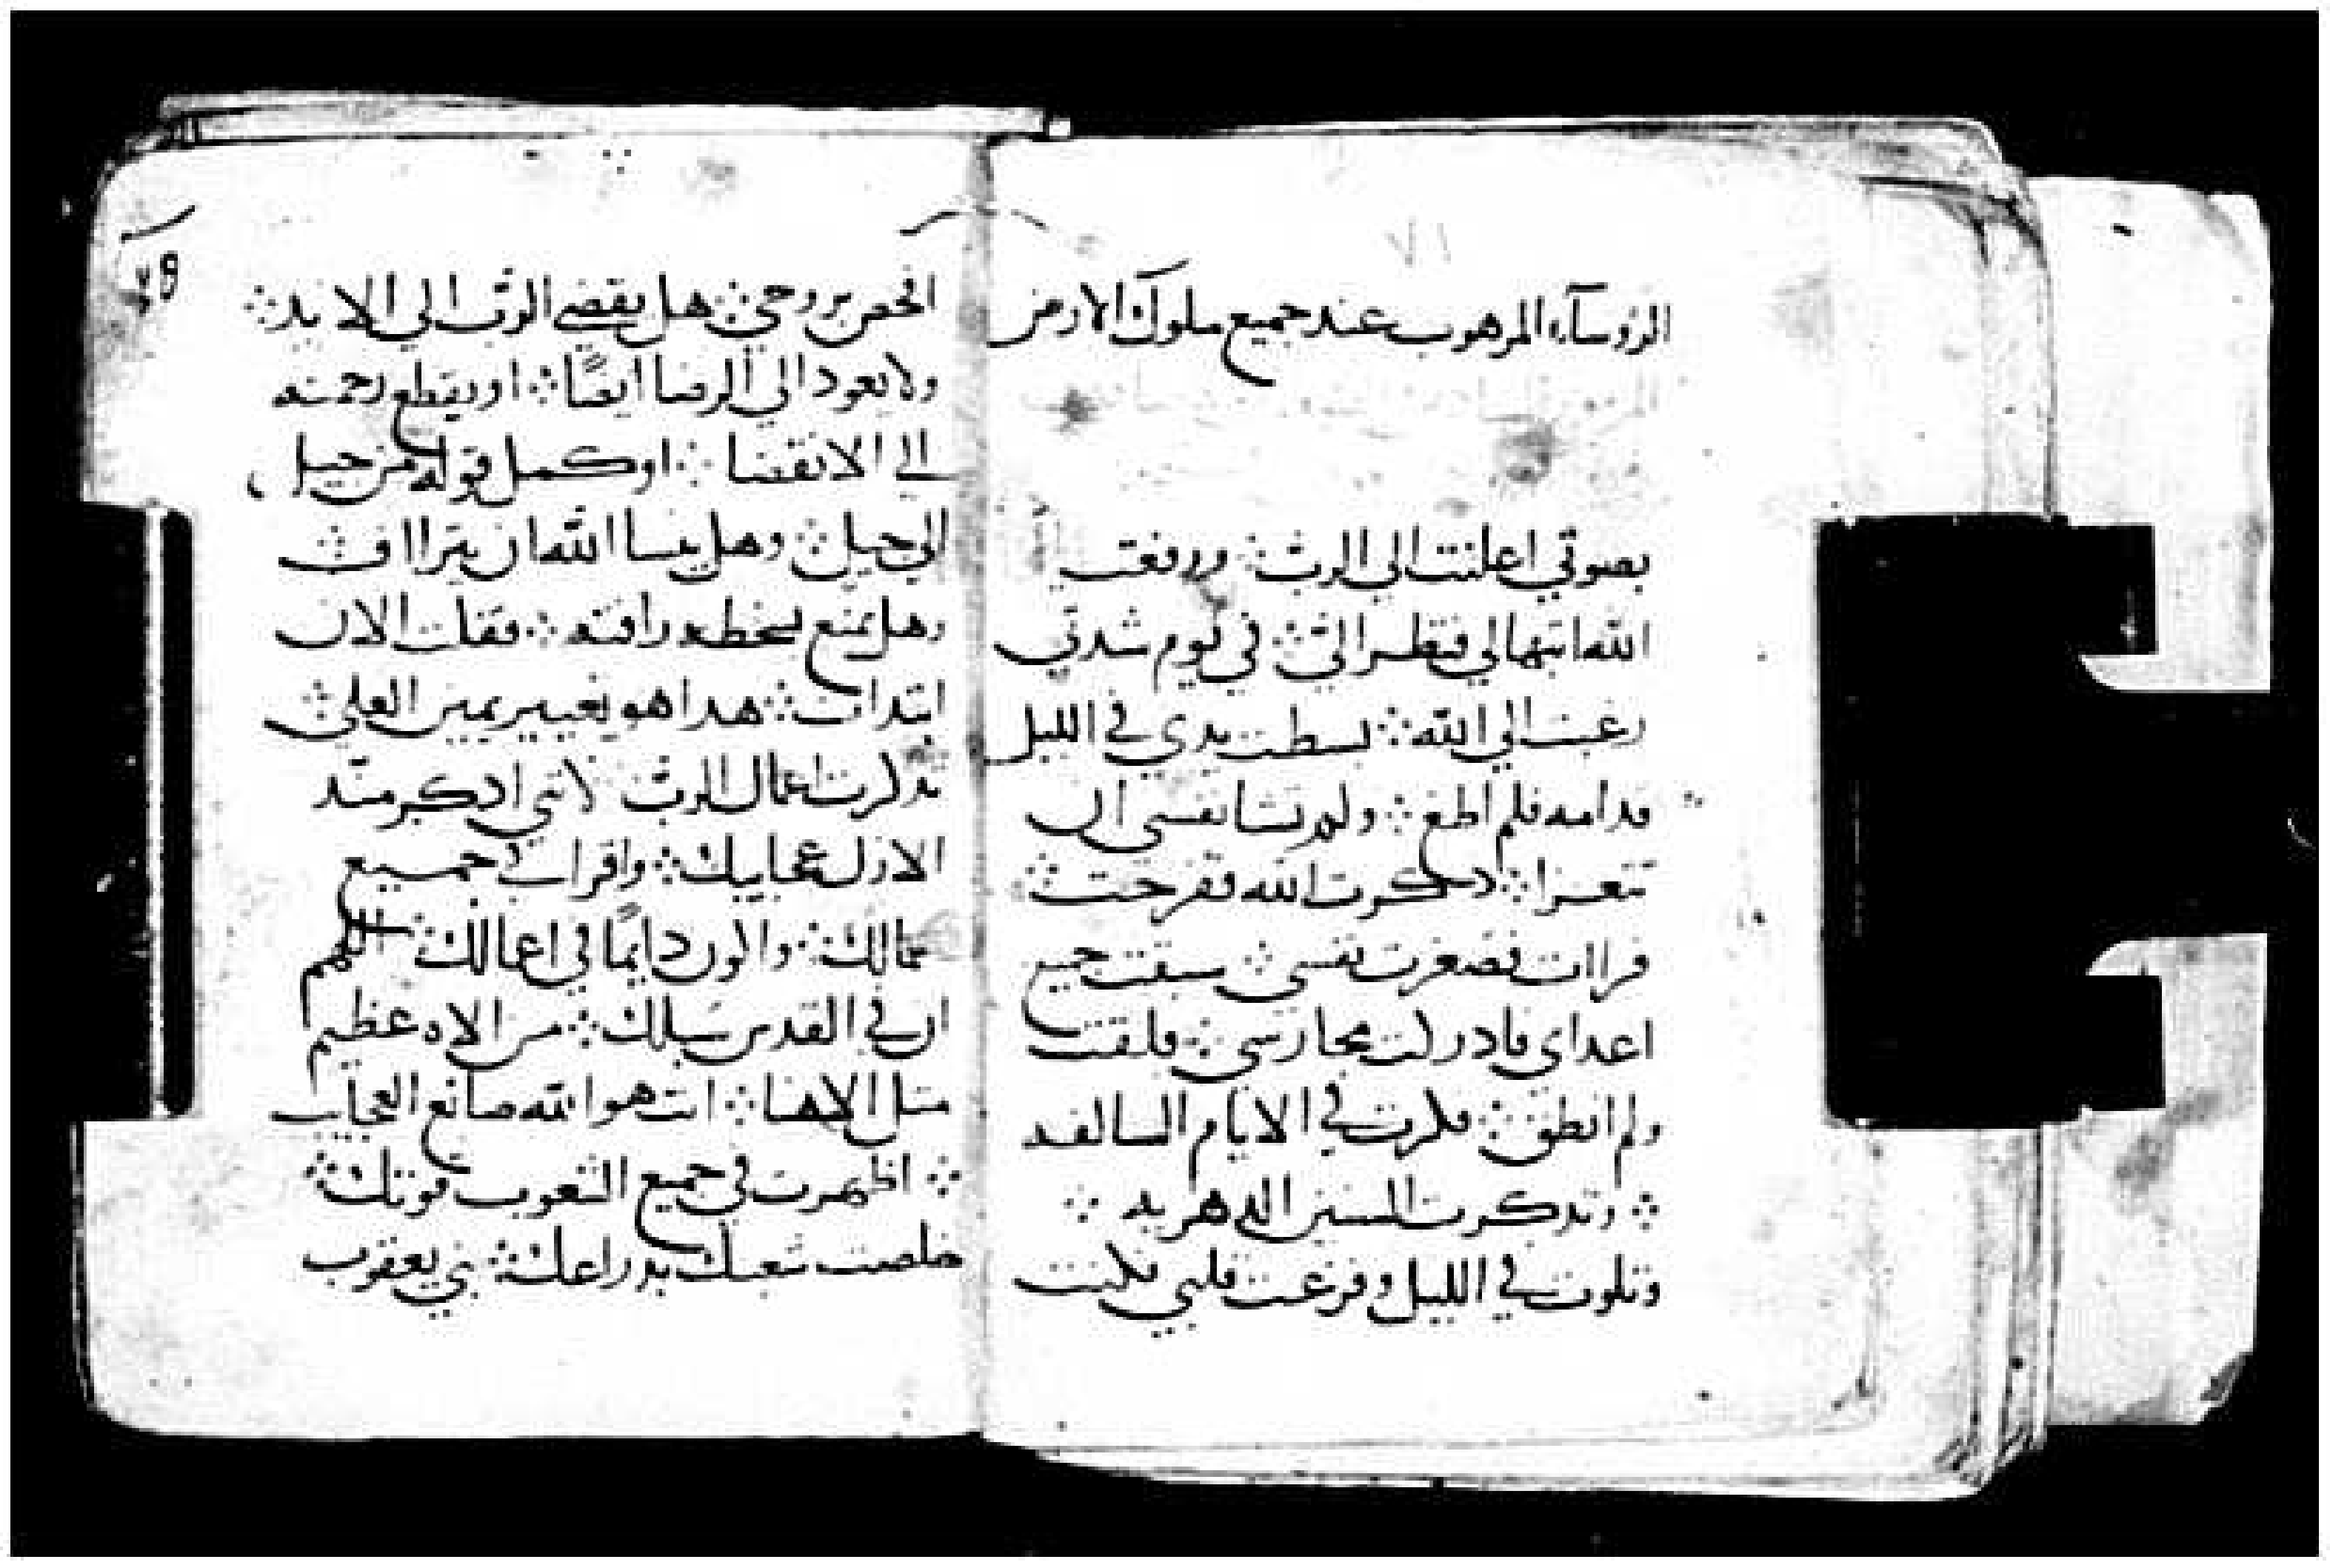 الروسآء المرهوب عند جميع ملوك الارض
بصوتي اعلنت الي الرب ورفعت
الله ابتهالي فنظر الي في يوم شدتي
رغبت الي الله بسطت يدي في الليل
قدامه فلم اطغ ولم تشا نفسي ان
تتعزا دكرت الله ففرحت
قراات فصغرت نفسي سبقت جميع
اعداي فادركت محارسي قلقت
ولم انطق فكرت في الايام السالفه
وتدكرت السنين الدهريه
وتلوت في الليل وفزعت قلبي فكنت
افحص بروحي هل يقضي الرب الي الابد
ولا يعود الي الرضا ايضًا او يقطع رحمته
الي الانقضا او كمل قوله من جيل
الي جيل وهل ينسا الله ان يترااف
وهل يمنع بسخطه رافته فقلت الان
ابتدات هدا هو تغيير يمين العلي
تدكرت اعمال الرب لانني ادكر مند
الازل عجايبك واقرا في جميع
اعمالك واكون دايمًا في اعمالك اللهم
ان في القدس سبلك من الاه عظيم
متل الاهنا انت هو الله صانع العجايب
اظهرت في جميع الشعوب قوتك
خلصت شعبك بدراعك بني يعقوب